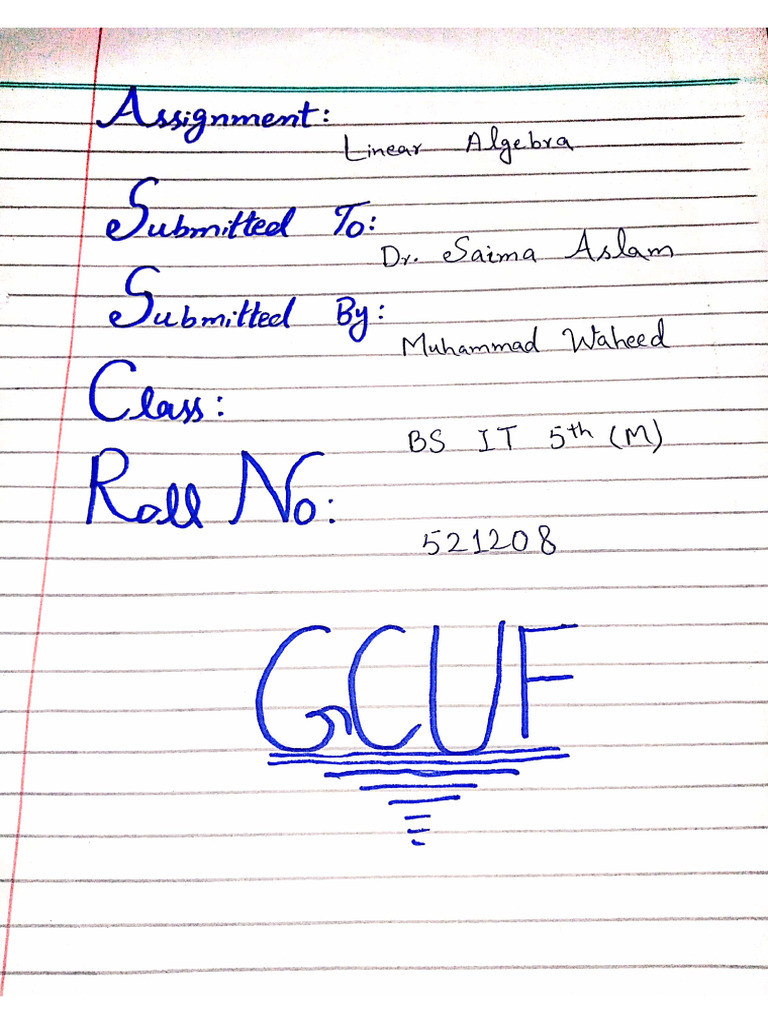 Assignment:
Linear Algebra
Submitted To:
Dr. Saima Aslam
Submitted By:
Muhammad Waheed
Class:
BS IT 5th (M)
Roll No:
521208
GCUF